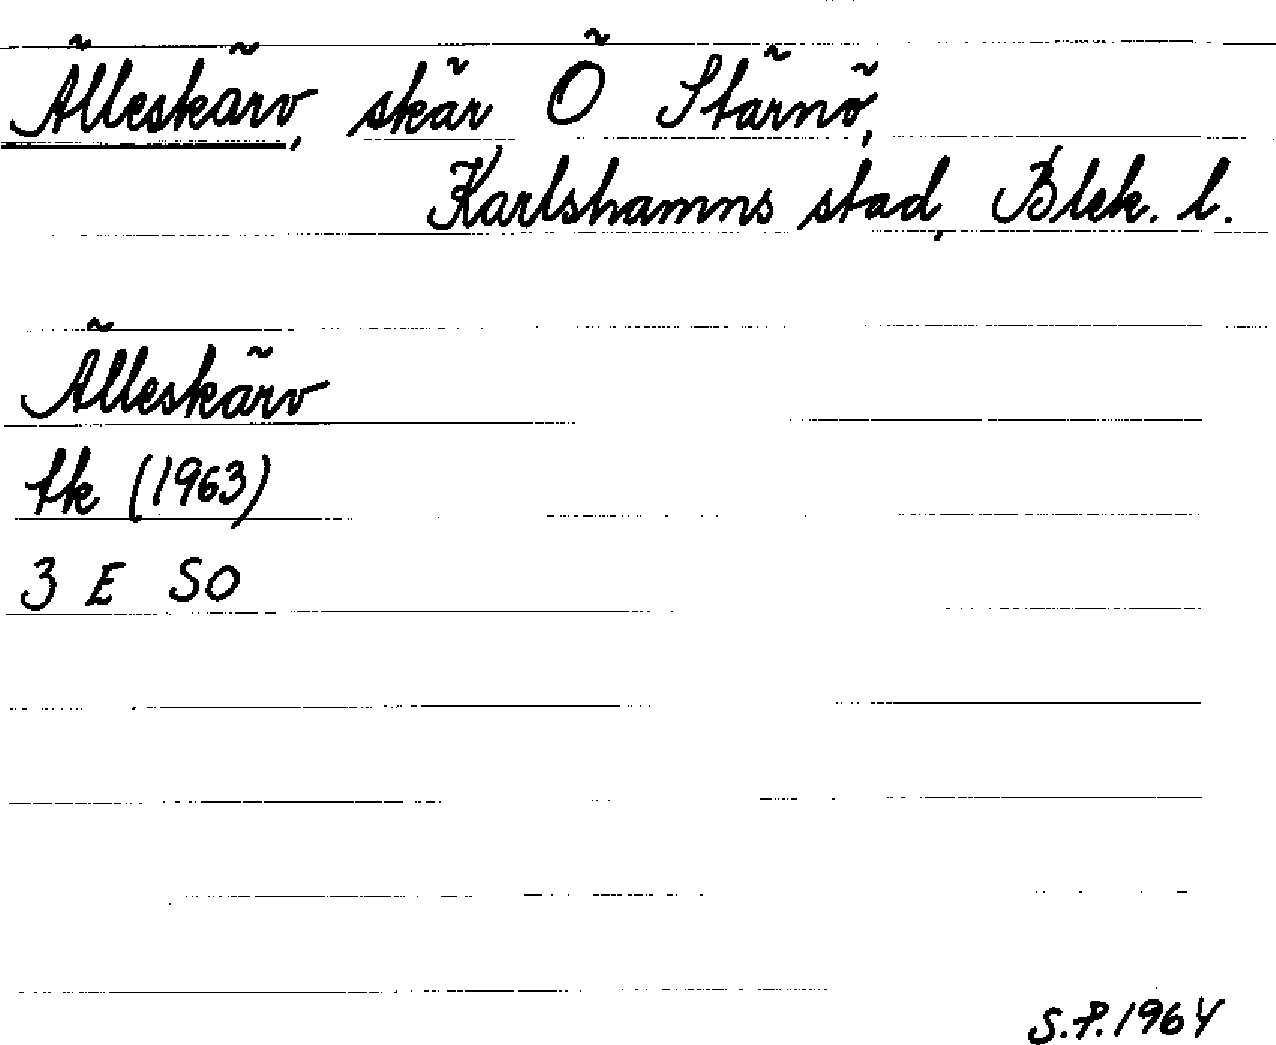 Älleskärv, skär Ö Stärnö,
Karlshamns stad, Blek. l.
Älleskärv
tk (1963)
3 E SO
S.P. 1964